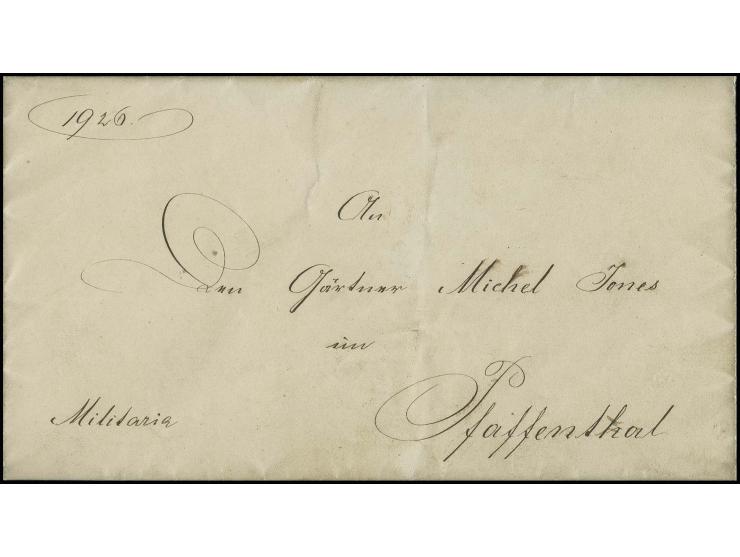 1926.
An
Den Gärtner Michel Jones
im
Pfaffenthal
Militaria